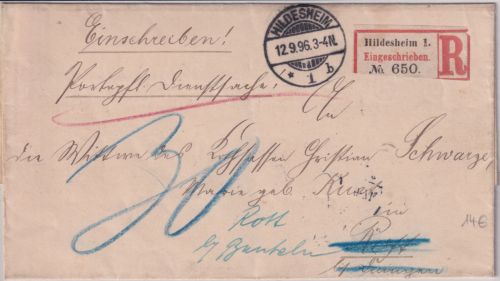 Einschreiben!
HILDESHEIM
12.9.96.3-4N.
* 1 b
Hildesheim 1.
Eingeschrieben.
No. 650.
R
Portopfl. Dienstsache.
An
die Wittwe des Christian Schwarze,
Marie geb.
in
30
Rott
b/ Banteln
14€